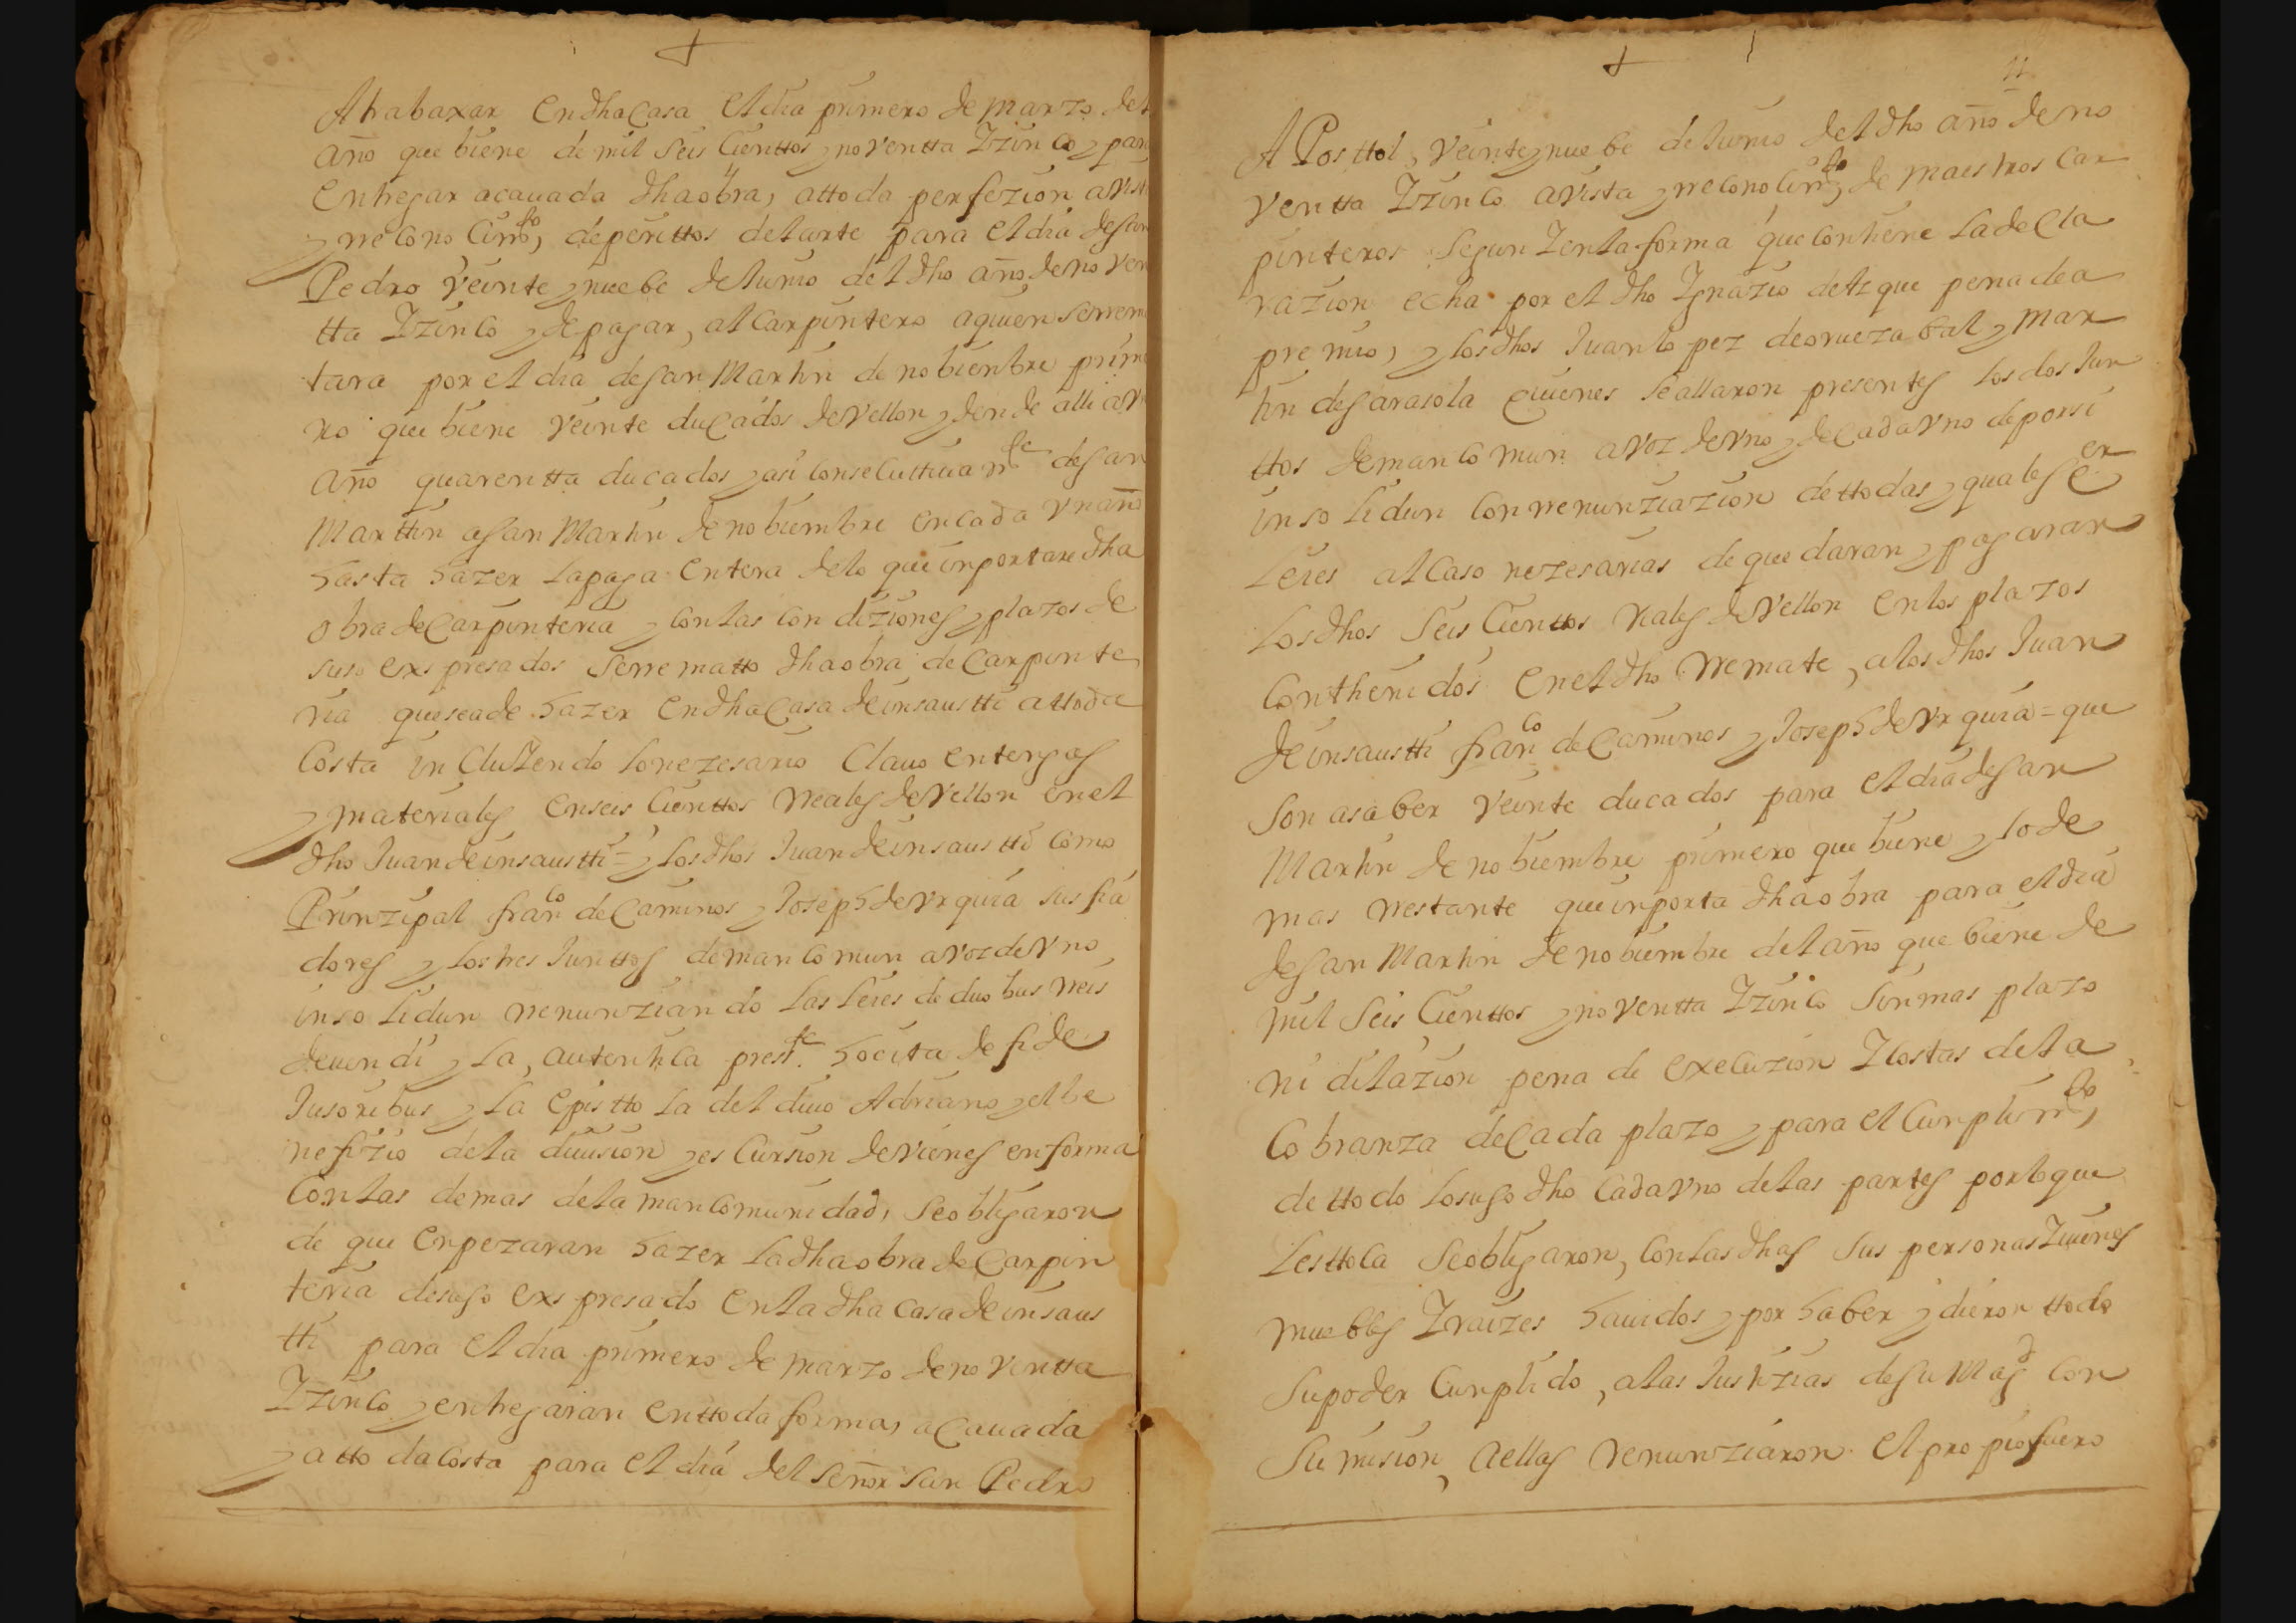 Atrabaxar en dha Casa el dia primero de marzo del
año que biene de mil seis Cienttos y noventta Izinco y para
entregar acauada dha obra, a ttoda perfezion a vista
y rreconocim^to, de perittos del arte para el dia de san
Pedro veinte y nuebe de Junio del dho año de noven
tta Izinco y de pagar, al carpintero a quien se rrema
tara por el dia de san Martin de nobienbre prime
ro que biene veinte ducados de vellon y dende alli a vn
año quarentta ducados y asi consecuttiuam^te de san
Marttin a san Martin de nobiembre en cada vn año
hasta hazer la paga entera de lo que inportare dha
obra de Carpinteria y con las condiziones y plazos de
suso exspresados se rrematto dha obra de Carpinte
ria que se a de hazer en dha Casa de insaustti a ttoda
Costa incluiendo lo nezesario Clauo entergas
y materiales en seis Cienttos Reales de Vellon en el
dho Juan de insaustti = y los dhos Juan de insaustti como
Prinzipal fran^co de Caminos y Joseph de vrquia sus fia
dores y los tres Junttos de mancomun a voz de vno
insolidun rrenunziando las leies de duobus rreis
deuendi y la, autentica pres^te. hocita de fide
Jusoribus y la epistto la del diuo Adriano y el be
nefizio de la diuision y escursion de vienes en forma
Con las demas de la mancomunidad, se obligaron
de que enpezaran hazer la dha obra de Carpin
teria de suso exspresado en la dha casa de insaus
tti para el dia primero de marzo de noventta
Izinco y entregaran en ttoda forma, acauada
y a ttoda costa para el dia del señor san Pedro
11
APosttol, veinte y nuebe de Junio del dho año de no
ventta Izinco a vista y rreconocim^to, de maestros Car
pinteros segun I en la forma que contiene la decla
razion echa por el dho Ignazio de Izque pena de a
premio, y los dhos Juan lopez de orueza bal y Mar
tin de sarasola quienes se allaron presentes los dos Jun
ttos de mancomun a voz de vno y de cada vno de por si
insolidun con rrenunziazion de ttodas y quales e^er
leies al caso nezesarias de que daran y pagaran
los dhos seis Cienttos Riales de Vellon en los plazos
Conthenidos en el dho rremate, a los dhos Juan
de insaustti fran^co de Caminos y Joseph de vrquia = que
son a saber veinte ducados para el dia de san
Martin de nobiembre primero que biene y lo de
mas rrestante que inporta dha obra para el dia
de san Martin de nobiembre del año que biene de
mil seis Cienttos y noventta Izinco sin mas plazo
ni dilazion pena de execuzion I costas de la
Cobranza de Cada plazo y para el Cunplim^to,
de ttodo lo suso dho Cada vno de las partes por lo que
les ttoca se obligaron, con las dhas sus personas I uienes
muebles I raizes hauidos y por haber y dieron ttodo
su poder Cunplido, a las Justizias de su Mag^d con
sumision, a ellas renunziaron el propio fuero